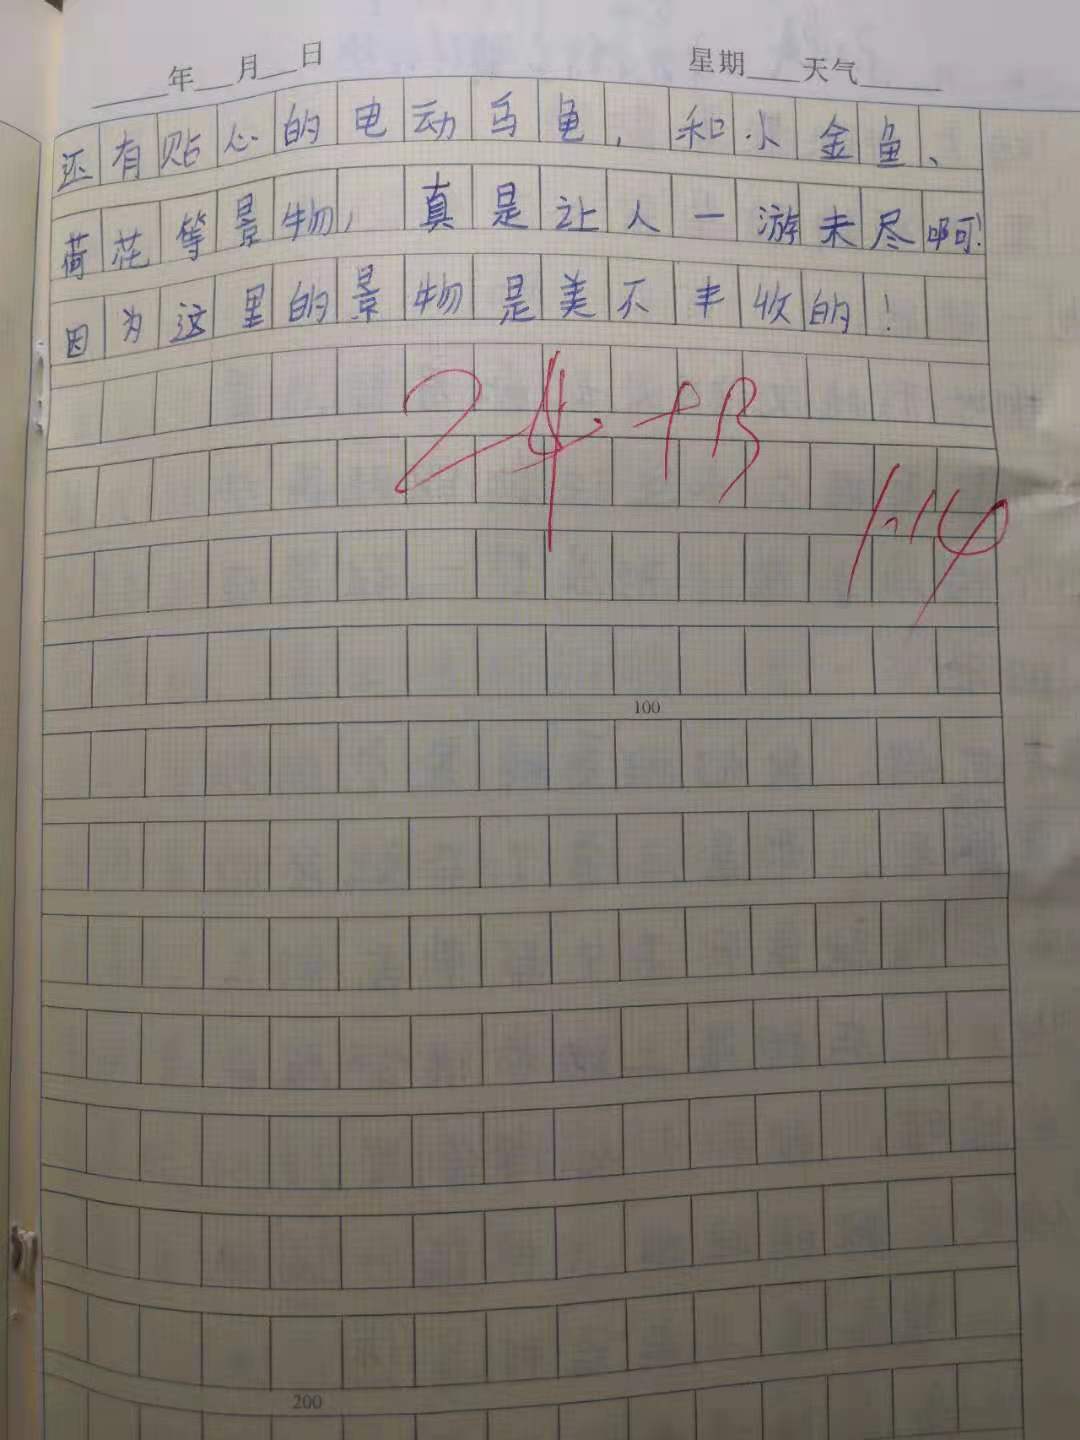 年 月 日 星期 天气
还有贴心的电动乌龟,和小金鱼、
荷花等景物,真是让人一游未尽啊!
因为这里的景物是美不丰收的!
24.+13
1.14
100
200